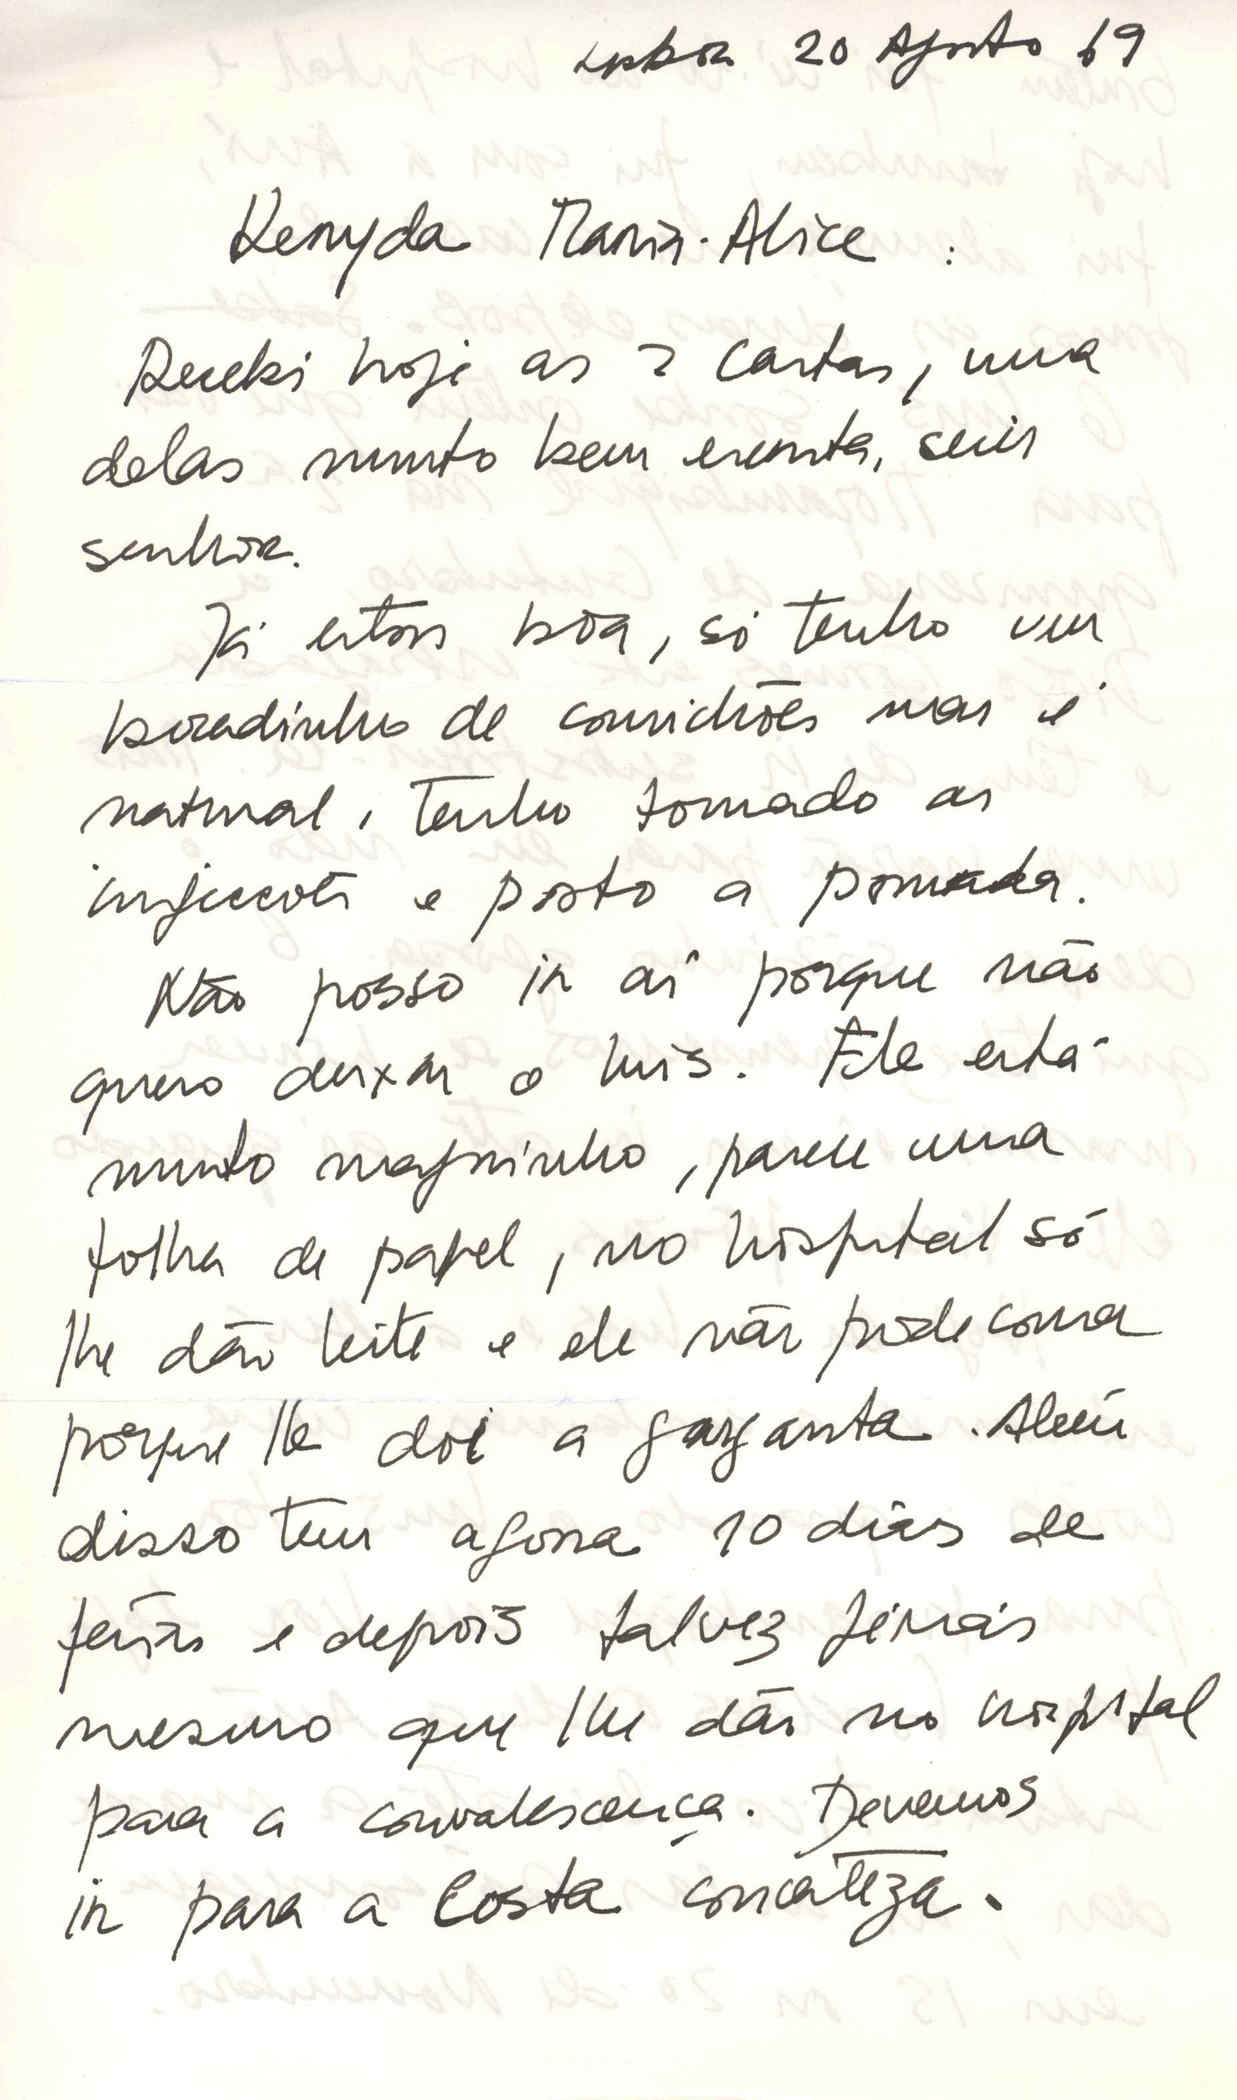 Lisboa 20 Agosto 69
Maria-Alice :
Recebi hoje as 2 cartas, uma
delas muito bem escrita, sim
senhora.
Já estou bôa, só tenho um
bocadinho de comichões mas é
natural, tenho tomado as
injecções e posto a pomada.
Não posso ir aí porque não
quero deixar o Luis. Ele está
muito magrinho, parece uma
folha de papel, no hospital só
lhe dão leite e ele não pode comer
porque lhe doi a garganta. Além
disso tem agora 10 dias de
férias e depois talvez ferias
mesmo que lhe dão no hospital
para a convalescença. Devemos
ir para a Costa concateza.